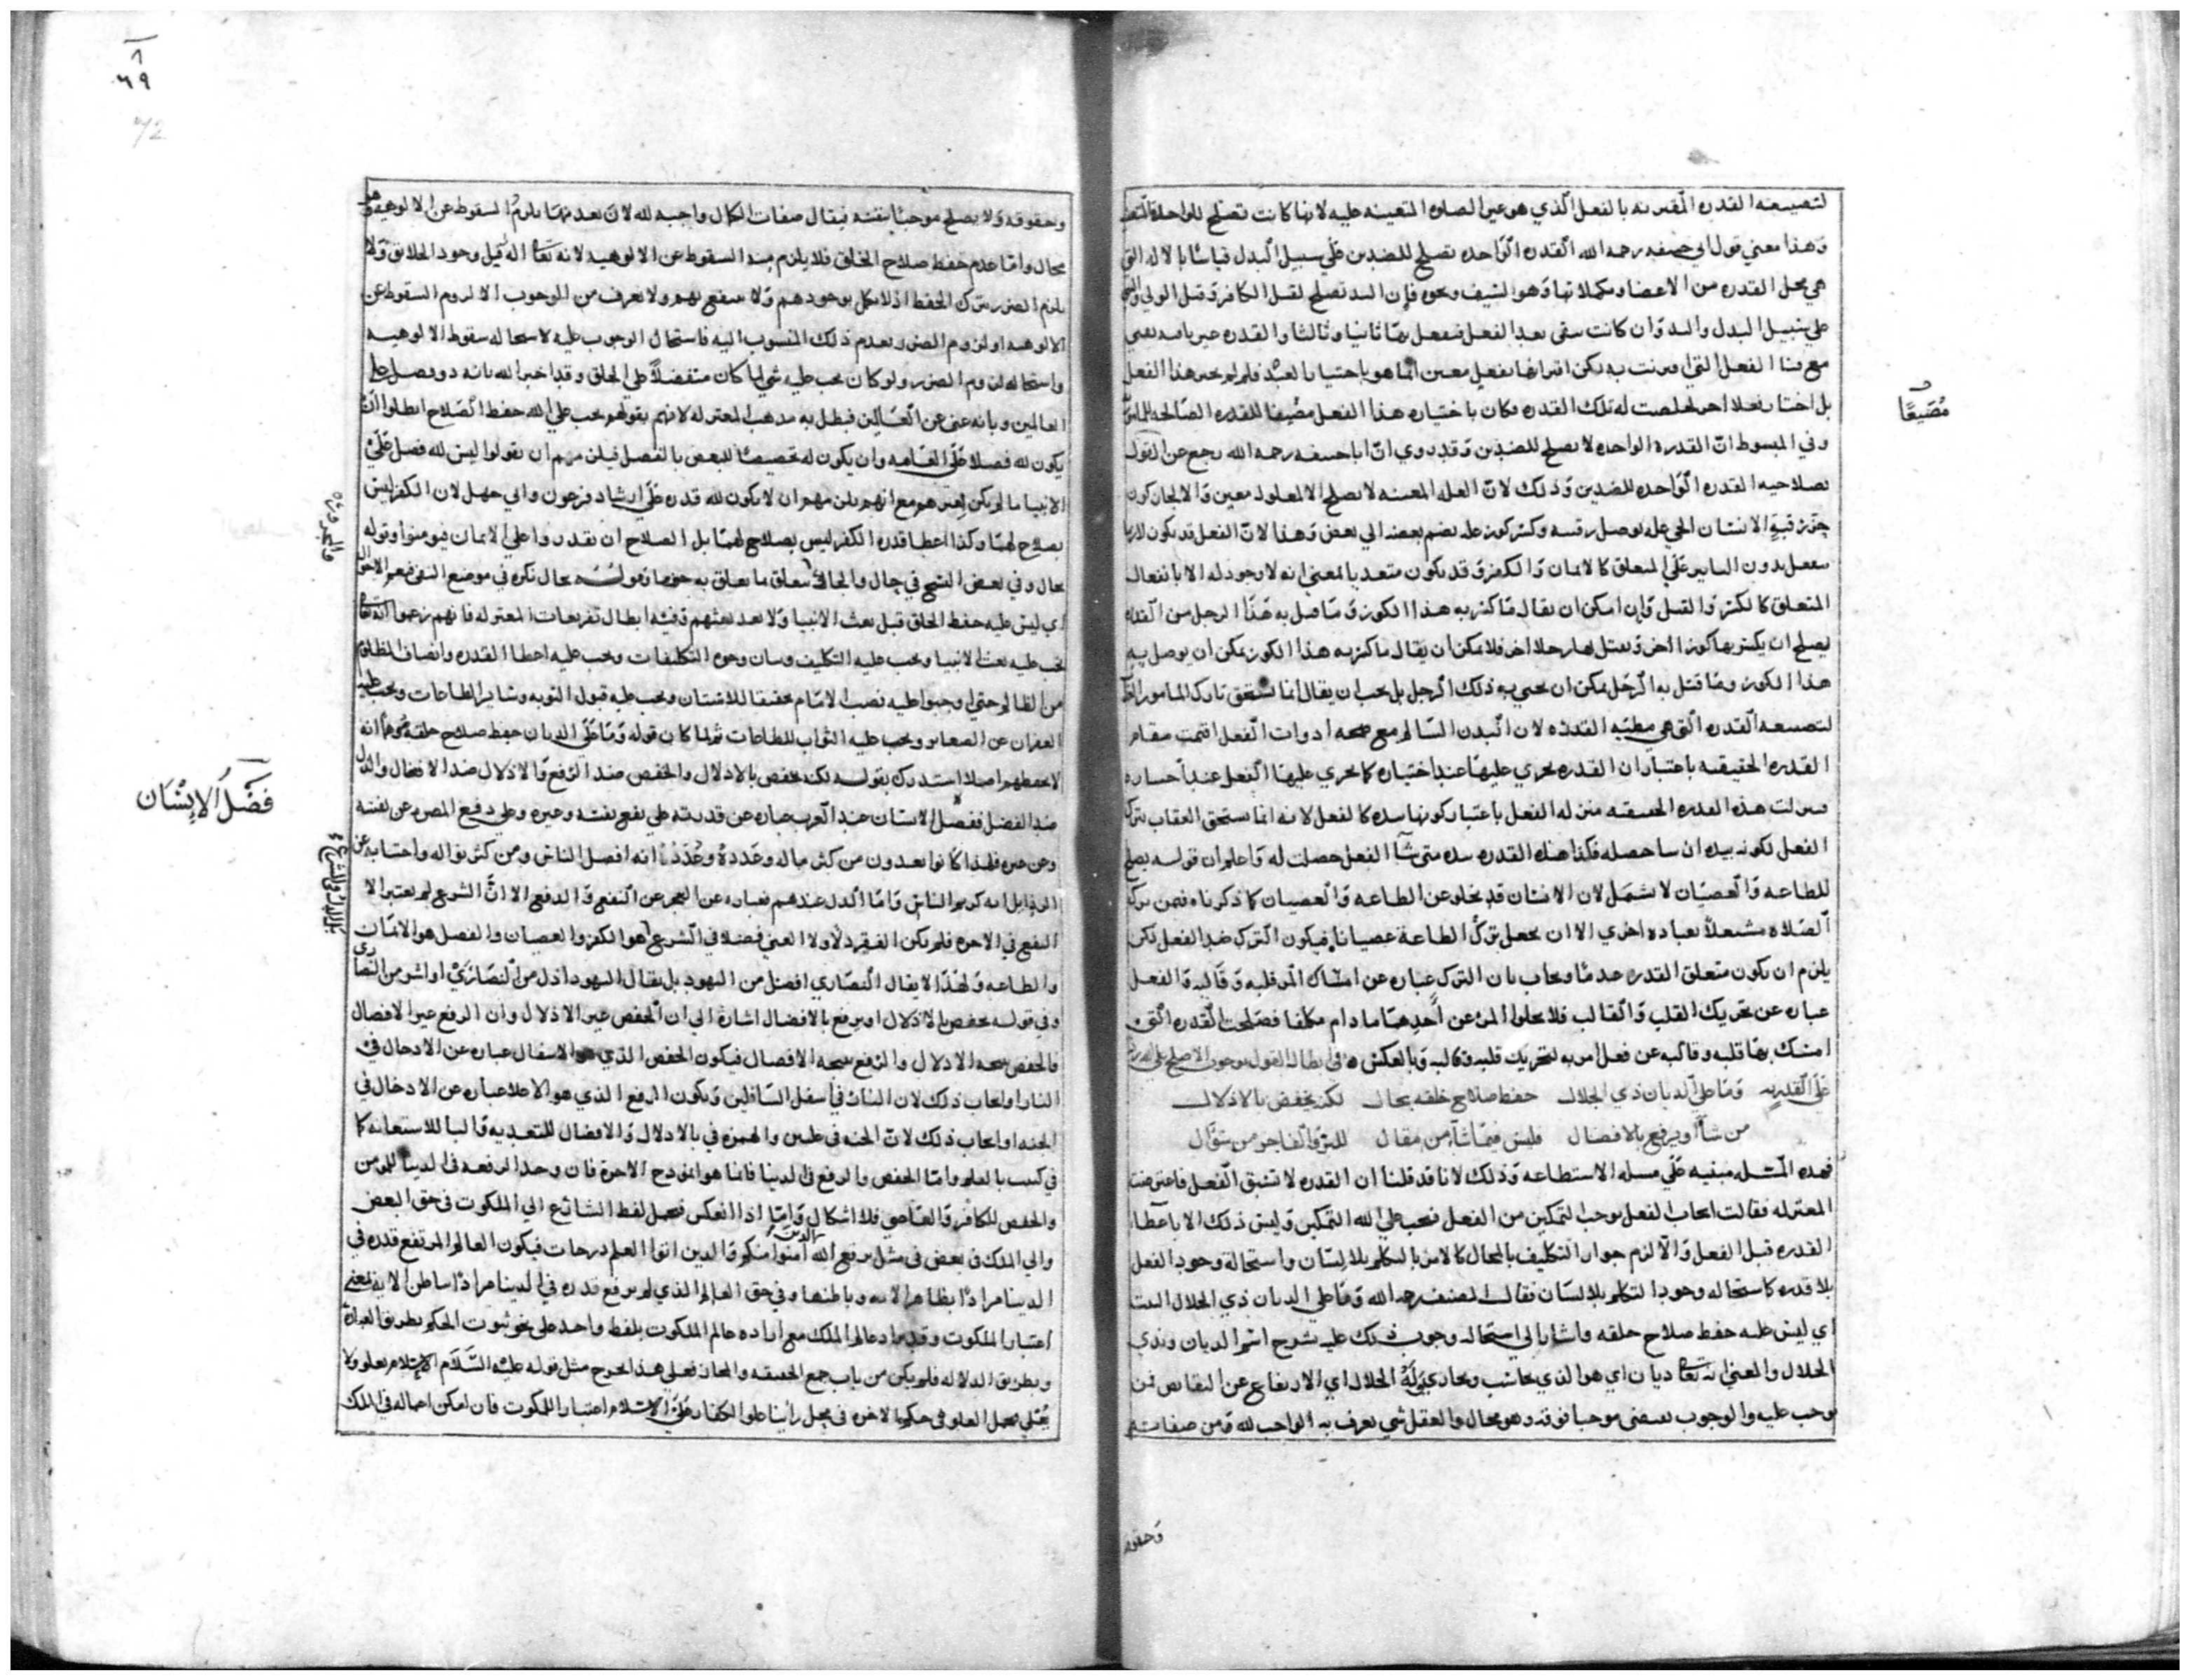 لتضييعه القدره المقترنه بالفعل الذي هو غير الصلوه المتعينه عليه لانها كانت تصلح للواحد
وهذا معني قول ابي حنيفه رحمه الله القدره الواحده تصلح للضدين علي سبيل البدل قياسا بالاله التي
هي محل القدره من الاعضا ومكملاتها وهو السيف ونحوه فان اليد تصلح لقتل الكافر وقتل الولي
علي سبيل البدل واليد وان كانت تبقي بعد الفعل فنفعل بها ثانيا وثالثا والقدره
مع هذا الفعل التي اقترنت به لكن اقترانها بفعل معين انما هو باختيار العبد فلو لم يختر هذا الفعل
بل اختار فعلا اخر لحصلت له تلك القدره فكان باختياره هذا الفعل مضيعا للقدره الصالحه
مُضَيِّعًا
وفي المبسوط ان القدره الواحده لا تصلح للضدين وقد روي ان ابا حنيفه رحمه الله رجع عن القول
بصلاحيه القدره الواحده للضدين وذلك لان العله المعينه لا تصلح الا لمعلول معين والا لجاز كون
حز رقبه الانسان الحي عله لوصل رقبته وكسر كوز عله لضم بعضه الي بعض وهذا لان الفعل قد يكون لازما
يفعل بدون التاثير علي المتعلق كالايمان والكفر وقد يكون متعديا بالمعني انه لا وجود له الا بانفعال
المتعلق كالكسر والقتل وان امكن ان يقال ما كسر به هذا الكوز وما قتل به هذا الرجل من القدره
يصلح ان يكسر بها كوزا اخر ويقتل بها رجلا اخر فلا يمكن ان يقال ما كسر به هذا الكوز يمكن ان يوصل به
هذا الكوز وما قتل به الرجل يمكن ان يحيي به ذلك الرجل بل يجب ان يقال انما يستحق تارك المامور
لتضييعه القدره التي هي مظنه القدره لان البدن السالم مع صحه ادوات الفعل اقيمت مقام
القدره الحقيقيه باعتبار ان القدره تجري عليها عند اختياره كما يجري عليها الفعل عند اختياره
ونزلت هذه القدره الحقيقيه منزله الفعل باعتبار كونها بيده كالفعل لانه انما يستحق العقاب بترك
الفعل لكونه بيده ان شا حصله فكذا هذه القدره بيده متي شا الفعل حصلت له واعلم ان قوله يصلح
للطاعه والعصيان لا يشمل لان الانسان قد يخلو عن الطاعه والعصيان كما ذكرناه فيمن ترك
الصلاه مشتغلا بعباده اخري الا ان يجعل ترك الطاعة عصيانا فيكون الترك ضد الفعل لكن
يلزم ان يكون متعلق القدره عدما ويجاب بان الترك عباره عن امساك المر قلبه وقالبه والفعل
عباره عن تحريك القلب والقالب فلا يخلو المرء عن احدهما ما دام مكلفا فصلحت القدره التي
امسك بها قلبه وقالبه عن فعل امر به لتحريك قلبه وقالبه وبالعكس في ابطال القول بوجوب الاصلح علي الله
علي القدريه وما علي الديان ذي الجلال حفظ صلاح خلقه بحال لكن يخفض بالاذلال
من شاء او يرفع بالافضال فليس فيما شاء من مقال للبر والفاجر من سؤال
فهذه المسئله مبنيه علي مسله الاستطاعه وذلك لانا قد قلنا ان القدره لا تسبق الفعل فاعترضت
المعتزله فقالت ايجاب الفعل يوجب التمكين من الفعل فيجب علي الله التمكين وليس ذلك الا باعطا
القدره قبل الفعل والا لزم جواز التكليف بالمحال كالامر بالتكلم بلا لسان واستحالة وجود الفعل
بلا قدره كاستحاله وجود التكلم بلا لسان فقال المصنف رحمه الله وما علي الديان ذي الجلال البيت
اي ليس عليه حفظ صلاح خلقه واشار الي استحاله وجوب ذلك عليه بشرح اسم الديان وبذي
الجلال والمعني انه تعالي ديان اي هو الذي يحاسب ويجازي وله الجلال اي الارتفاع عن النقايص فمن
وجب عليه والوجوب يقتضي موجبا فوقه وهو محال والعقل شي يعرف به الواجب لله ومن صفاته
وحقوقه
٨
٦٩
72
وحقوقه ولا يصلح موجبا بنفسه فيقال صفات الكمال واجبه لله لان بعدمها يلزم السقوط عن الالوهيه وهو
محال واما عدم حفظ صلاح الخلق فلا يلزم منه السقوط عن الالوهيه لانه تعالي اله قبل وجود الخلايق ولا
يلزم الضرر بترك الحفظ اذ لا يكمل بوجودهم ولا ينتفع بهم ولا يعرف من الوجوب الا لزوم السقوط عن
الالوهيه او لزوم الضرر بعدم ذلك المنسوب اليه فاستحال الوجوب عليه لاستحاله سقوط الالوهيه
واستحاله لزوم الضرر ولو كان يجب عليه شي لما كان متفضلا علي الخلق وقد اخبر الله بانه ذو فضل علي
العالمين وبانه غني عن العالمين فبطل به مذهب المعتزله لانهم بقولهم يجب علي الله حفظ الصلاح ابطلوا ان
يكون لله فضلا علي العامه وان يكون له تخصيصا للبعض بالفضل فيلزمهم ان يقولوا ليس لله فضل علي
الانبيا ما لم يكن لغيرهم مع انهم يلزمهم ان لا يكون لله قدره علي ارشاد فرعون وابي جهل لان الكفر ليس
بصلاح لهما وكذا اعطا قدره الكفر ليس بصلاح لهما بل الصلاح ان يقدروا علي الايمان فيومنوا وقوله
بحال وفي بعض النسخ في حال والحال يتعلق بما يتعلق به وقوله بحال نكره في موضع النفي فيعم الاحوال
اي ليس عليه حفظ الخلق قبل بعث الانبيا ولا بعد بعثهم وفيه ابطال تفريعات المعتزله فانهم زعموا انه تعالي
يجب عليه بعث الانبيا ويجب عليه التكليف وبيان وجوه التكليفات ويجب عليه اعطا القدره وانصاف المظلوم
من الظالم حتي اوجبوا عليه نصب الامام تحقيقا للانتصاف ويجب عليه قبول التوبه وساير الطاعات ويجب عليه
الغفران عن الصغاير ويجب عليه الثواب للطاعات ثم لما كان قوله وما علي الديان حفظ صلاح خلقه موهما انه
لا يحفظهم اصلا استدرك بقوله لكن يخفض بالاذلال والخفض ضد الرفع والاذلال ضد الافضال والذل
ضد الفضل ففضل الانسان عند العرب عباره عن قدرته علي نفع نفسه وغيره وعلي دفع المضره عن نفسه
فَضْلُ الإِنْسَان
وعن غيره فلهذا كانوا يعدون من كثر ماله وعَدده وعُدَدُه انه افضل الناس ومن كثر نواله واجتنابه عن
الرذايل انه كريم الناس واما الذل عندهم فعباره عن العجز عن النفع والدفع الا ان الشرع لم يعتبر الا
النفع في الاخره فلم يكن الفقر ذلا ولا الغني فضلا في الشرع هو الكفر والعصيان والفضل هو الايمان
والطاعه ولهذا لا يقال النصاري افضل من اليهود بل يقال اليهود اذل من النصاري او اشر من النصاري
وفي قوله يخفض بالاذلال او يرفع بالافضال اشارة الي ان الخفض غير الاذلال وان الرفع غير الافضال
فالخفض نتيجه الاذلال والرفع نتيجه الافضال فيكون الخفض الذي هو الاسفال عباره عن الادخال في
النار او ايجاب ذلك لان النار في اسفل السافلين ويكون الرفع الذي هو الاعلا عباره عن الادخال في
الجنه او ايجاب ذلك لان الجنه في عليين والهمزه في بالاذلال والافضال للتعديه والبا للاستعانه كما
في كتبت بالقلم واما الخفض والرفع في الدنيا فانما هو انموذج الاخرة فان وجد الرفعه في الدنيا للمومن
والخفض للكافر والعاصي فلا اشكال واما اذا انعكس فيحمل لفظ الشارع الي الملكوت في حق البعض
والي الملك في بعض في مثل يرفع الله الذين امنوا منكم والذين اوتوا العلم درجات فيكون العالم المرتفع قدره في
الدنيا مرادا بظاهر الايه وباطنها وفي حق العالم الذي لم يرفع قدره في الدنيا مرادا بباطن الايه بمعني
اعتبار الملكوت وقد يراد عالم الملك مع اراده عالم الملكوت بلفظ واحد علي نحو ثبوت الحكم بطريق العباره
وبطريق الدلاله فلم يكن من باب جمع الحقيقه والمجاز فعلي هذا يخرج مثل قوله عليه السلام الاسلام يعلو ولا
يُعلي يحمل العلو في حكم الاخره في محل راينا علو الكفار علي الاسلام اعتبارا للملكوت فان امكن اعماله في الملك